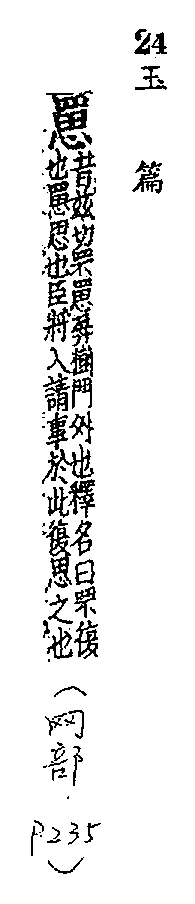 24 玉篇
罳
昔兹切罘罳屏樹門外也釋名曰罘復
也罳思也臣將入請事於此復思之也
(网部.P235)